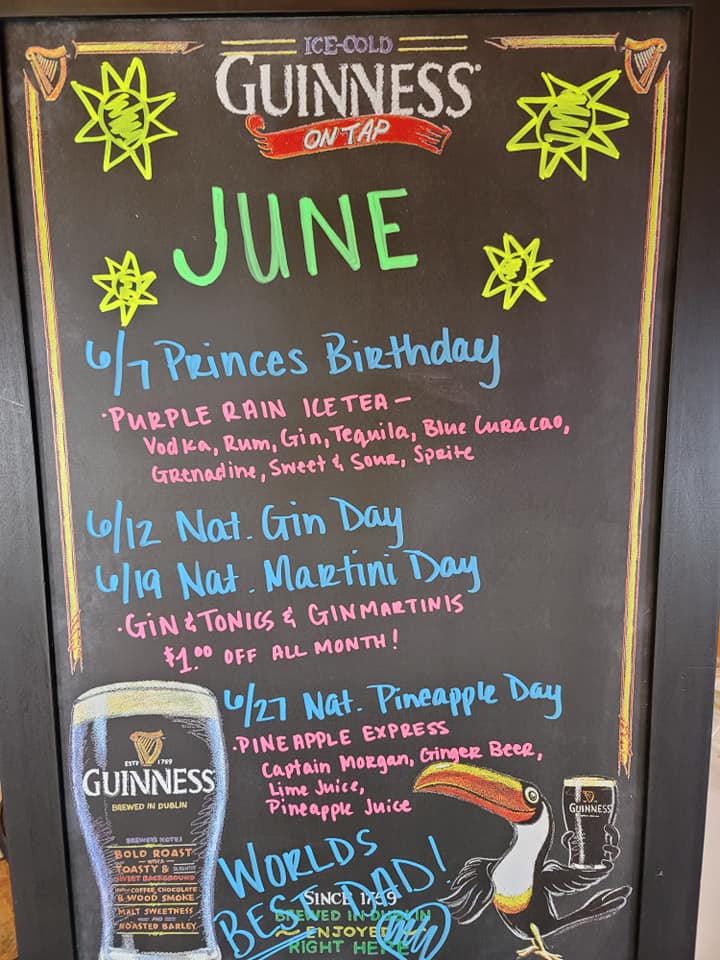 ICE-COLD
GUINNESS
ON TAP
JUNE
6/7 Princes Birthday
·PURPLE RAIN ICE TEA –
Vodka, Rum, Gin, Tequila, Blue Curacao,
Grenadine, Sweet & Sour, Sprite
6/12 Nat. Gin Day
6/19 Nat. Martini Day
·GIN & TONICS & GIN MARTINIS
$1.00 OFF ALL MONTH!
6/27 Nat. Pineapple Day
·PINEAPPLE EXPRESS
Captain Morgan, Ginger Beer,
Lime Juice,
Pineapple Juice
ESTD 1759
GUINNESS
BREWED IN DUBLIN
BREWER'S NOTES
BOLD ROAST
WITH A
TOASTY & SLIGHTLY
SWEET BACKGROUND
COFFEE, CHOCOLATE
& WOOD SMOKE
MALT SWEETNESS
AND
ROASTED BARLEY
GUINNESS
WORLDS
BEST DAD!
SINCE 1759
BREWED IN DUBLIN
~ ENJOYED ~
RIGHT HERE